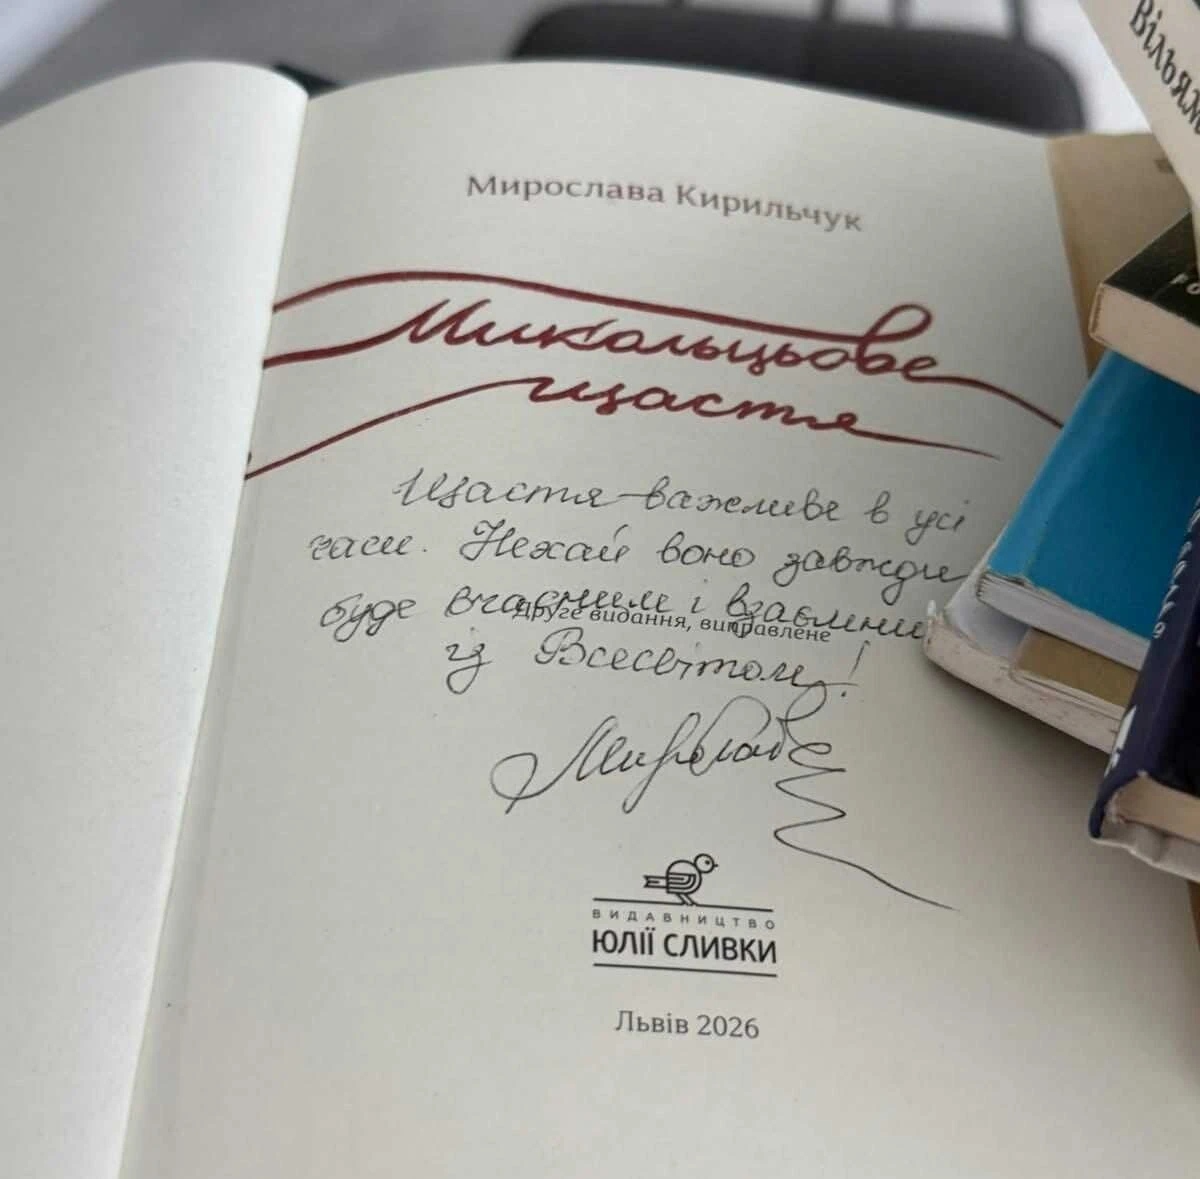 Мирослава Кирильчук
Микольцьове
щастя
Щастя – важливе в усі
часи. Нехай воно завжди
буде вчасним і взаємним
Друге видання, виправлене
із Всесвітом!
Мирослава
ВИДАВНИЦТВО
ЮЛІЇ СЛИВКИ
Львів 2026
Вільям